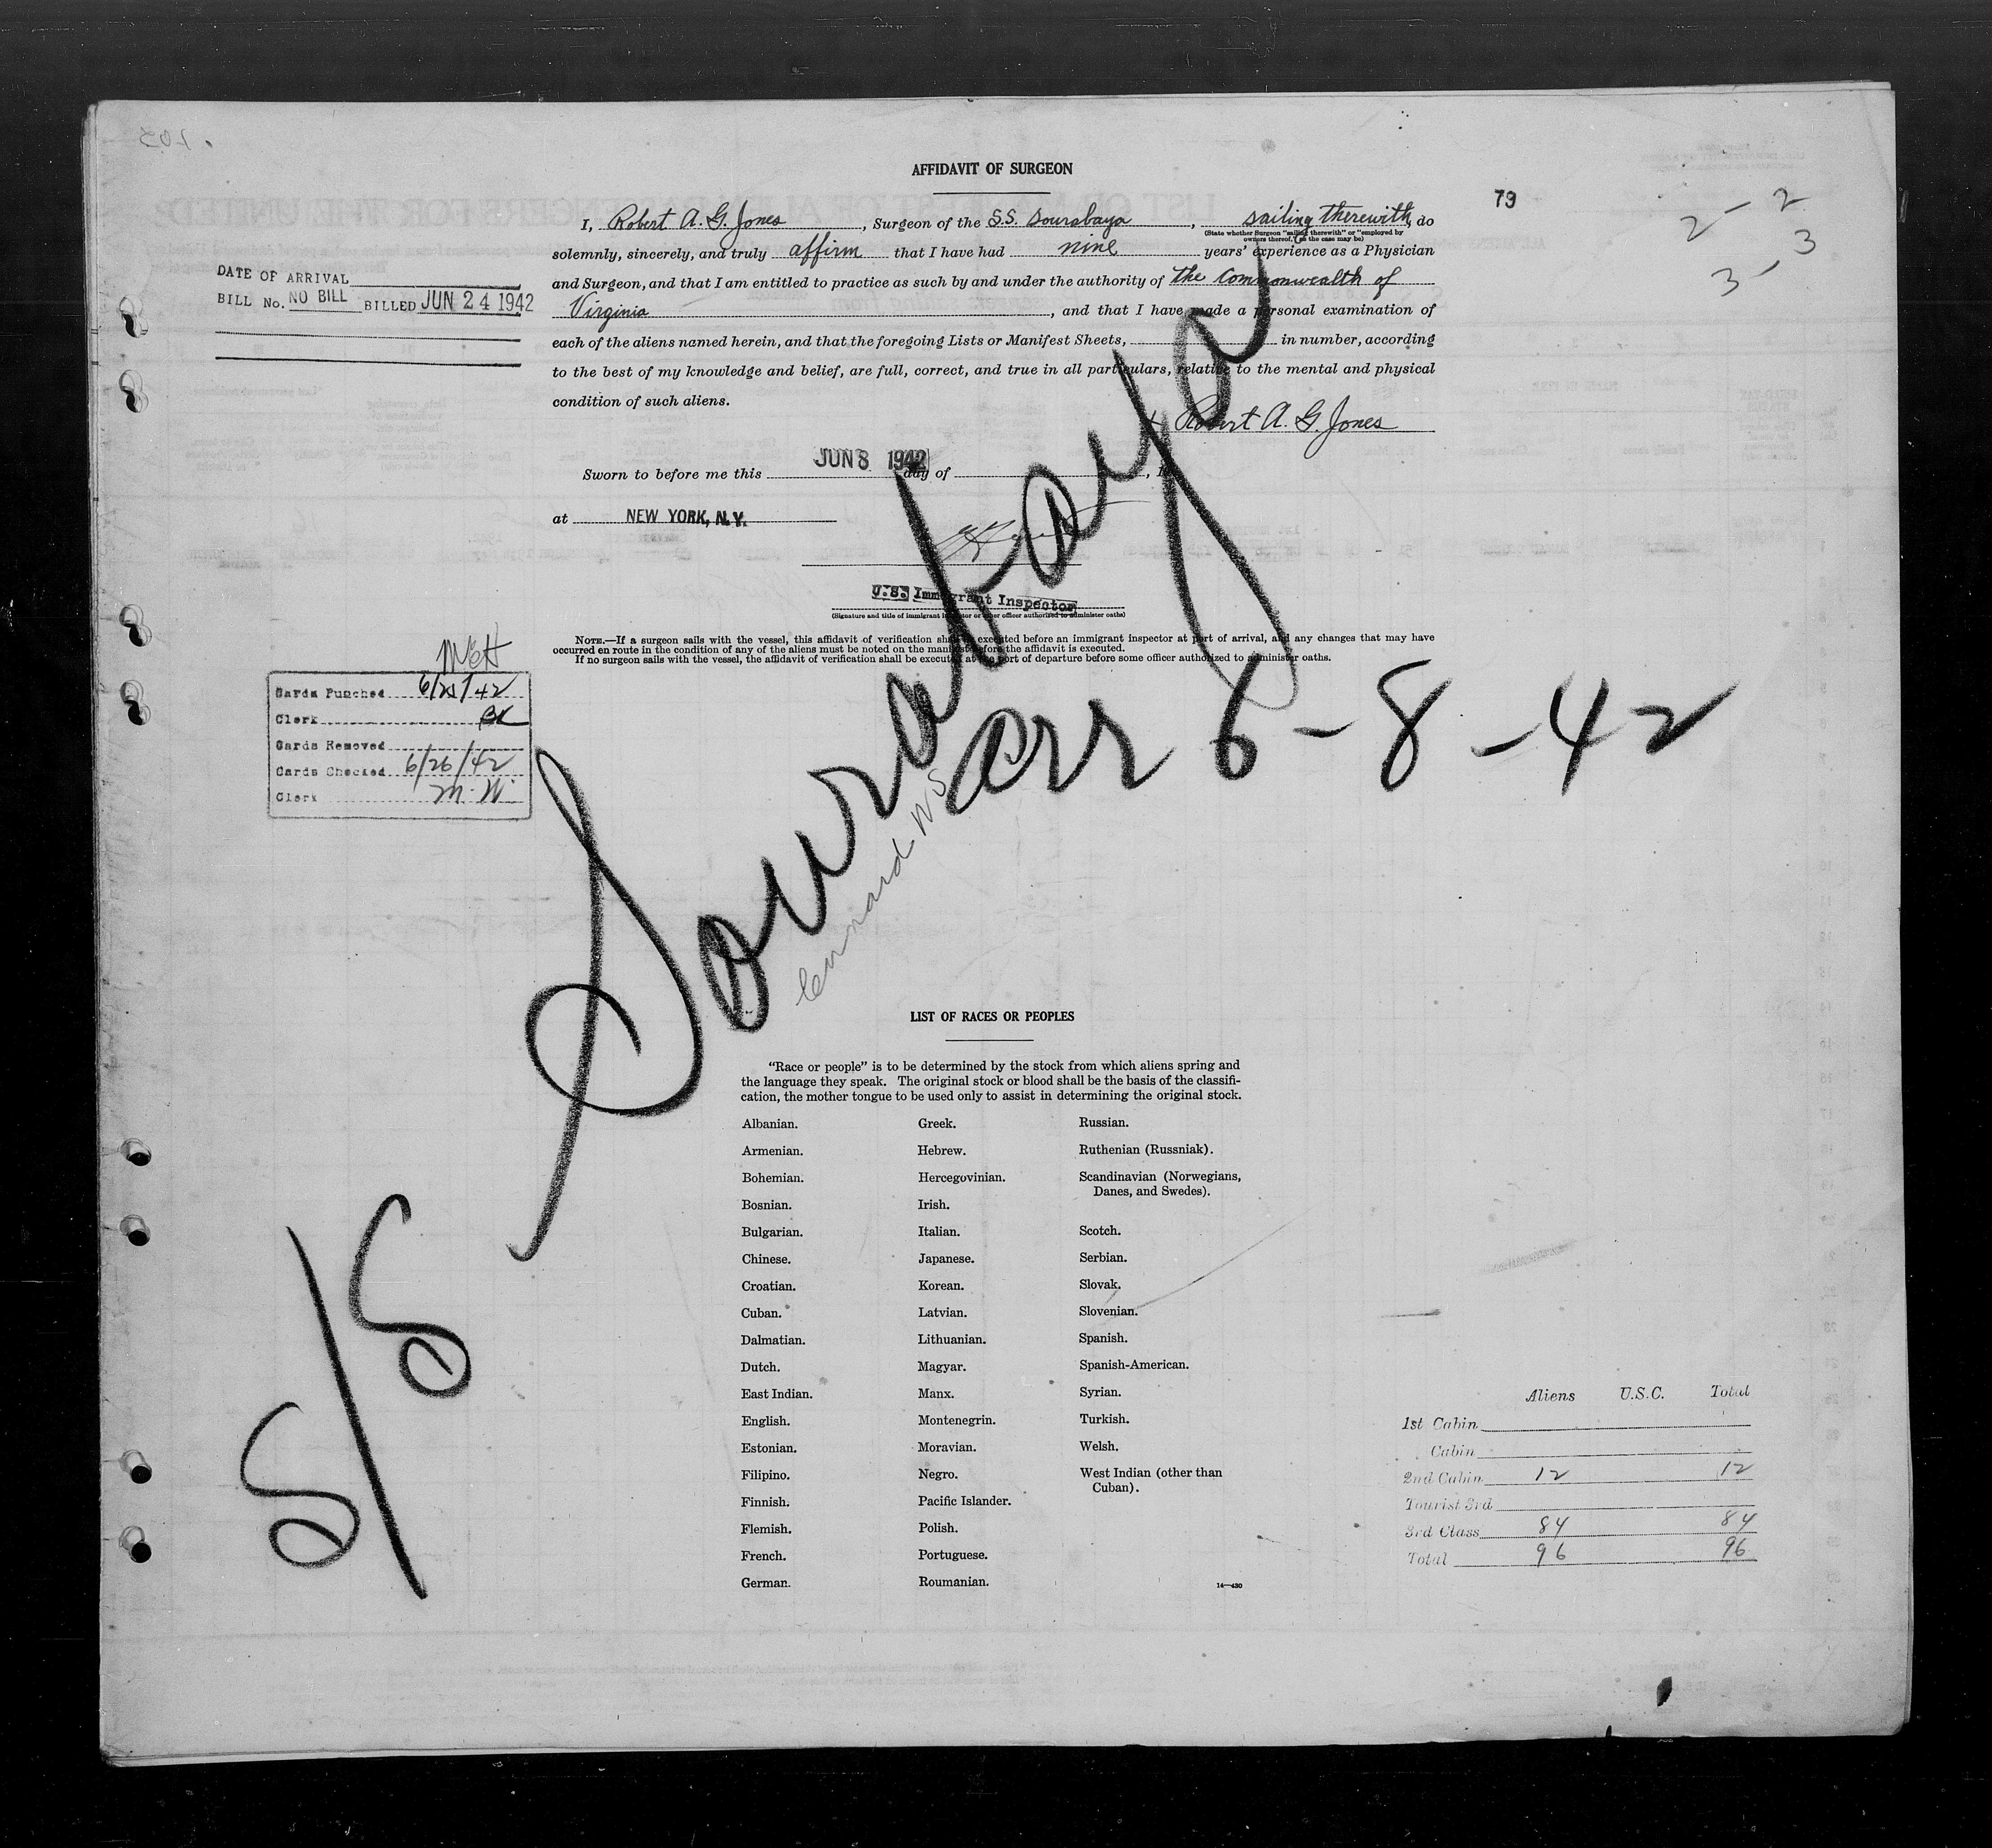 AFFIDAVIT OF SURGEON
79
2 - 2
3 - 3
I, Robert A. G. Jones, Surgeon of the S.S. Sourabaya, sailing therewith, do
(State whether Surgeon "sailing therewith" or "employed by
owners thereof," as the case may be)
solemnly, sincerely, and truly affirm that I have had nine years' experience as a Physician
and Surgeon, and that I am entitled to practice as such by and under the authority of the Commonwealth of
Virginia, and that I have made a personal examination of
each of the aliens named herein, and that the foregoing Lists or Manifest Sheets, in number, according
to the best of my knowledge and belief, are full, correct, and true in all particulars, relative to the mental and physical
condition of such aliens.
DATE OF ARRIVAL
BILL No. NO BILL BILLED JUN 24 1942
x Robert A. G. Jones
Sworn to before me this JUN 8 1942 day of , 1
at NEW YORK, N.Y.
U.S. Immigrant Inspector
(Signature and title of immigrant inspector or other officer authorized to administer oaths)
NOTE.—If a surgeon sails with the vessel, this affidavit of verification shall be executed before an immigrant inspector at port of arrival, and any changes that may have
occurred en route in the condition of any of the aliens must be noted on the manifest before the affidavit is executed.
If no surgeon sails with the vessel, the affidavit of verification shall be executed at the port of departure before some officer authorized to administer oaths.
Cards Punched 6/25/42
Clerk BK
Cards Removed
Cards Checked 6/26/42
Clerk M. W.
S/S Sourabaya
arr 6-8-42
LIST OF RACES OR PEOPLES
"Race or people" is to be determined by the stock from which aliens spring and
the language they speak. The original stock or blood shall be the basis of the classifi-
cation, the mother tongue to be used only to assist in determining the original stock.
Albanian.
Armenian.
Bohemian.
Bosnian.
Bulgarian.
Chinese.
Croatian.
Cuban.
Dalmatian.
Dutch.
East Indian.
English.
Estonian.
Filipino.
Finnish.
Flemish.
French.
German.
Greek.
Hebrew.
Hercegovinian.
Irish.
Italian.
Japanese.
Korean.
Latvian.
Lithuanian.
Magyar.
Manx.
Montenegrin.
Moravian.
Negro.
Pacific Islander.
Polish.
Portuguese.
Roumanian.
Russian.
Ruthenian (Russniak).
Scandinavian (Norwegians,
Danes, and Swedes).
Scotch.
Serbian.
Slovak.
Slovenian.
Spanish.
Spanish-American.
Syrian.
Turkish.
Welsh.
West Indian (other than
Cuban).
14—430
Aliens U.S.C. Total
1st Cabin
Cabin
2nd Cabin 12 12
Tourist 3rd
3rd Class 84 84
Total 96 96